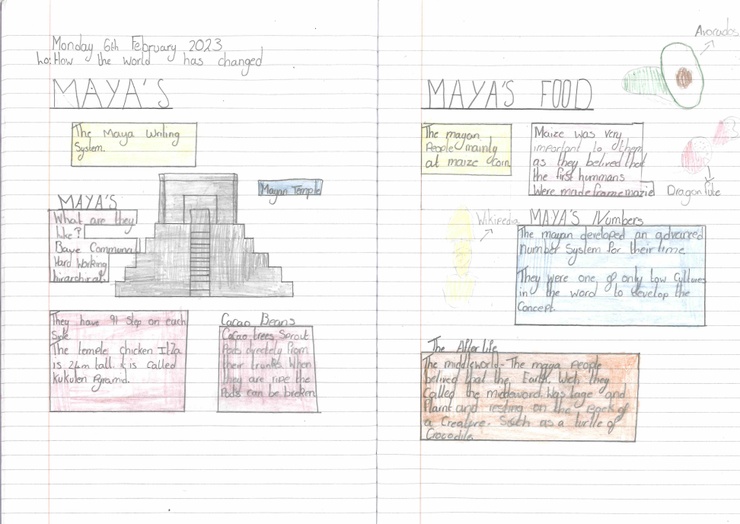 Monday 6th February 2023
Lo: How the world has changed
MAYA'S
The Maya Writing
System.
MAYA'S
What are they
like?
Communal
Hard Working
hirarchiral
Mayan Temple
They have 91 Step on each
Side
The temple chicken Itza
is 24m tall. it is called
Kukulen Pyramid.
Cacao Beans
Cacao trees Sprout
Pods directely from
their trunks. When
they are ripe the
Pods can be broken
MAYA'S FOOD
Avocados
The mayan
People mainly
at maize corn
Maize was very
important to them
as they belired that
the first hummans
Were made frome mazie
Dragon
Wikipedia
MAYA'S Numbers
The mayan developed an advanced
number System for their time
They were one of only low Cultures
in the word to develop the
Concept.
The Afterlife
The middleworld- The maya People
belired that the Earth, wich they
Called the middleword. Was large and
and resting on the Back of
a Creature. Such as a turtle of
Crocodile.